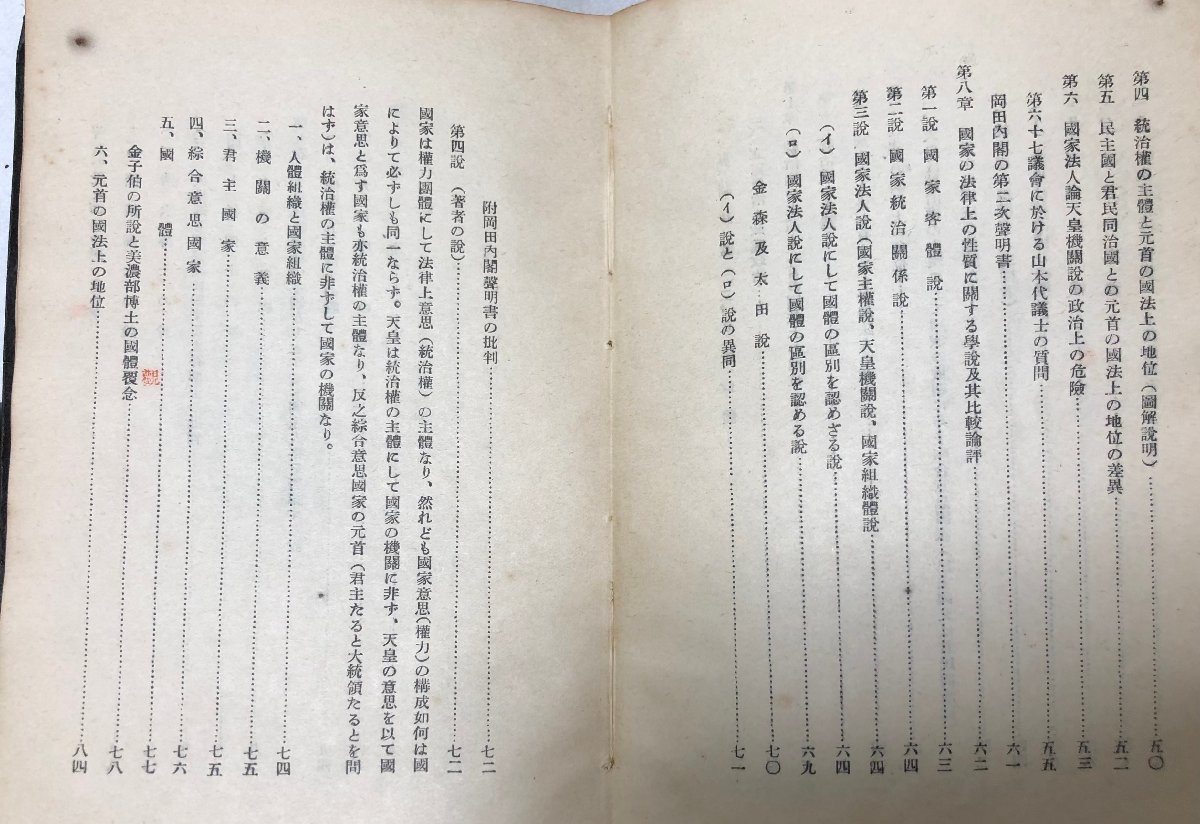 第四 統治權の主體と元首の國法上の地位(圖解說明)……五〇
第五 民主國と君民同治國との元首の國法上の地位の差異……五二
第六 國家法人論天皇機關說の政治上の危險……五三
第六十七議會に於ける山本代議士の質問……五五
岡田內閣の第二次聲明書……六一
第八章 國家の法律上の性質に關する學說及其比較論評……六二
第一說 國家客體說……六三
第二說 國家統治關係說……六四
第三說 國家法人說(國家主權說、天皇機關說、國家組織體說……六四
(イ)國家法人說にして國體の區別を認めざる說……六四
(ロ)國家法人說にして國體の區別を認める說……六九
金森及太田說……七〇
(イ)說と(ロ)說の異同……七一
附岡田內閣聲明書の批判……七二
第四說 (著者の說)……七二
國家は權力團體にして法律上意思(統治權)の主體なり、然れども國家意思(權力)の構成如何は國
によりて必ずしも同一ならず。天皇は統治權の主體にして國家の機關に非ず、天皇の意思を以て國
家意思と爲す國家も亦統治權の主體なり、反之綜合意思國家の元首(君主たると大統領たるとを問
はず)は、統治權の主體に非ずして國家の機關なり。
一、人體組織と國家組織……七四
二、機關の意義……七五
三、君主國家……七五
四、綜合意思國家……七六
五、國體……七七
金子伯の所說と美濃部博士の國體觀念……七八
六、元首の國法上の地位……八四